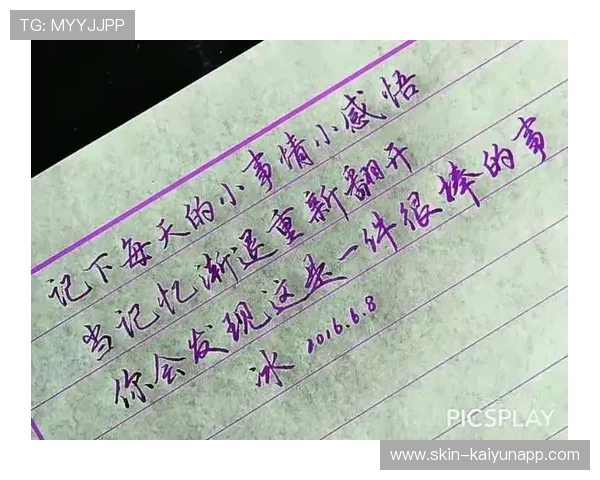 TG: MYYJJPP
记下每天的小事情小感悟
当记忆渐退重新翻开
你会发现这是一件很棒的事
冰 2016.6.8
PICSPLAY
www.skin-kaiyunapp.com